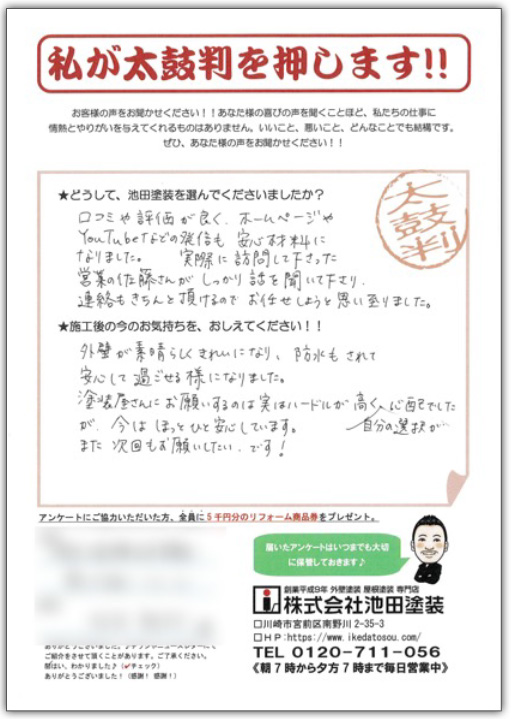 私が太鼓判を押します!!
お客様の声をお聞かせください！！あなた様の喜びの声を聞くことほど、私たちの仕事に
情熱とやりがいを与えてくれるものはありません。いいこと、悪いこと、どんなことでも結構です。
ぜひ、あなた様の声をお聞かせください！！
太鼓判
★どうして、池田塗装を選んでくださいましたか？
口コミや評価が良く、ホームページや
YouTubeなどの発信も安心材料に
なりました。 実際に訪問して下さった
営業の佐藤さんがしっかり話を聞いて下さり、
連絡もきちんと頂けるのでお任せしようと思い至りました。
★施工後の今のお気持ちを、おしえてください！！
外壁が素晴らしくきれいになり、防水もされて
安心して過ごせる様になりました。
塗装屋さんにお願いするのは実はハードルが高く、心配でした
自分の選択が
が、今はほっとひと安心しています。
また次回もお願いしたい、です！
アンケートにご協力いただいた方、全員に5千円分のリフォーム商品券をプレゼント。
届いたアンケートはいつまでも大切
に保管しておきます♪
創業平成9年 外壁塗装 屋根塗装 専門店
株式会社池田塗装
□川崎市宮前区南野川2-35-3
□HP:https://www.ikedatosou.com/
TEL 0120-711-056
《朝7時から夕方7時まで毎日営業中》
ご紹介をさせて頂くことがあります。ご了承ください。
はい、わかりました♪（✓チェック）
ありがとうございました！（感謝！感謝！）